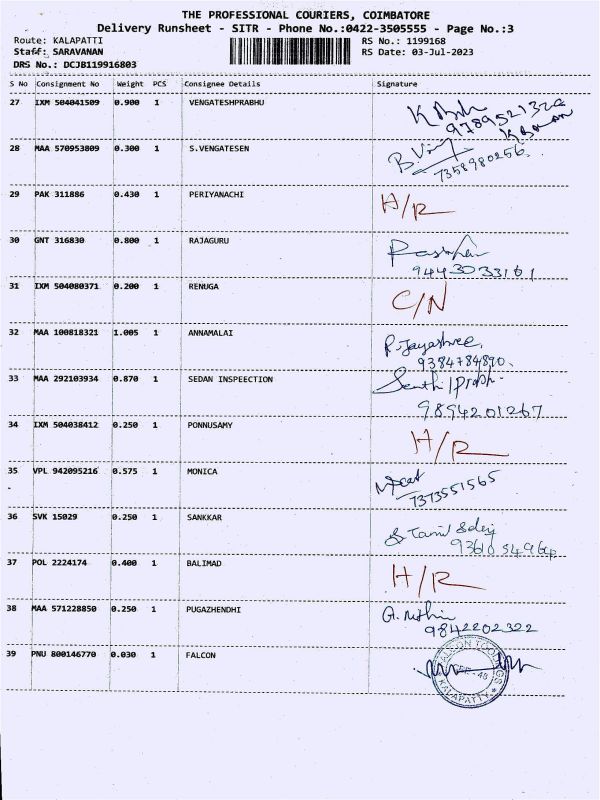 THE PROFESSIONAL COURIERS, COIMBATORE
Delivery Runsheet - SITR - Phone No.:0422-3505555 - Page No.:3
Route: KALAPATTI RS No.: 1199168
Staff: SARAVANAN RS Date: 03-Jul-2023
DRS No.: DCJB119916803
S No Consignment No Weight PCS Consignee Details Signature
27 IXM 504041509 0.900 1 VENGATESHPRABHU
28 MAA 570953809 0.300 1 S.VENGATESEN
7358980256
29 PAK 311886 0.430 1 PERIYANACHI H/R
30 GNT 316830 0.800 1 RAJAGURU
9443033161
31 IXM 504080371 0.200 1 RENUGA C/N
32 MAA 100818321 1.005 1 ANNAMALAI R. Jayashree,
9384784890.
33 MAA 292103934 0.870 1 SEDAN INSPEECTION
9894201267
34 IXM 504038412 0.250 1 PONNUSAMY H/R
35 VPL 942095216 0.575 1 MONICA
7373551565
36 SVK 15029 0.250 1 SANKKAR
37 POL 2224174 0.400 1 BALIMAD H/R
38 MAA 571228850 0.250 1 PUGAZHENDHI G. Nithin
9842202322
39 PNU 800146770 0.030 1 FALCON
KALAPATTY